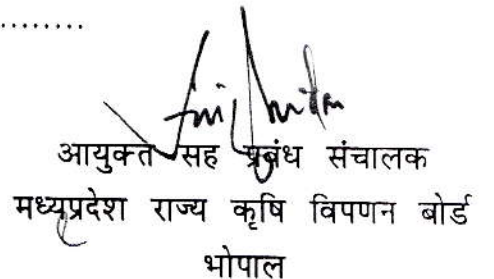 .........
आयुक्त सह प्रबंध संचालक
मध्यप्रदेश राज्य कृषि विपणन बोर्ड
भोपाल